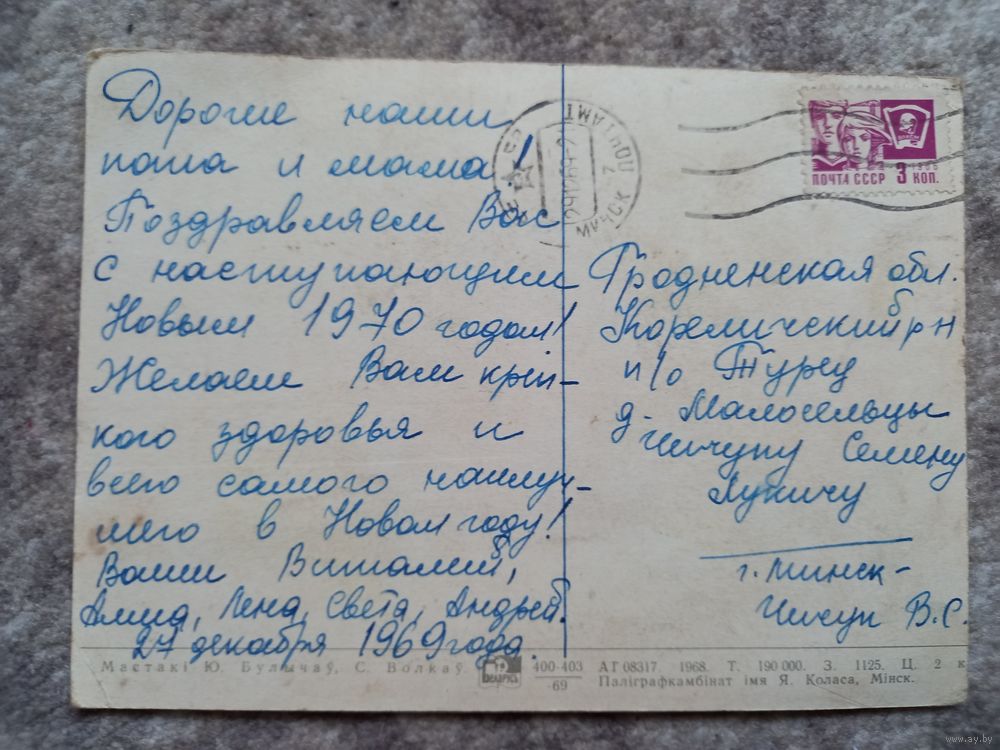 Дорогие наши
папа и мама!
Поздравляем Вас
с наступающим
Новым 1970 годом!
Желаем Вам креп-
кого здоровья и
всего самого наилуч-
шего в Новом году!
Ваши Виталий,
Алла, Лена, Света, Андрей.
27 декабря 1969 года.
ПОЧТАМТ
МИНСК 7
ВЛКСМ
1966
ПОЧТА СССР 3 КОП.
Гродненская обл.
Кореличский р-н
п/о Турец
д. Малосельцы
Чичуну Семену
Лукичу
г. Минск-
Чичун В.С.
Мастакі Ю. Булычаў, С. Волкаў
БЕЛАРУСЬ
400-403
-69
АГ 08317. 1968. Т. 190 000. З. 1125. Ц. 2 к
Паліграфкамбінат імя Я. Коласа, Мінск.
www.ay.by